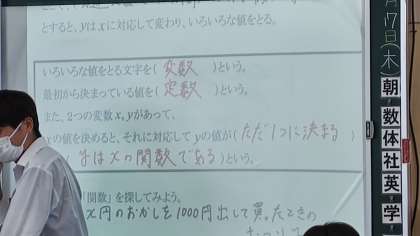 とすると、yはxに対応して変わり、いろいろな値をとる。
いろいろな値をとる文字を( 変数 )という。
最初から決まっている値を( 定数 )という。
また、2つの変数x,yがあって、
xの値を決めると、それに対応してyの値が( ただ1つに決まる )
( yはxの関数である )という。
「関数」を探してみよう。
x円のおかしを1000円出して買ったときの
月17日(木)
朝
数
体
社
英
学